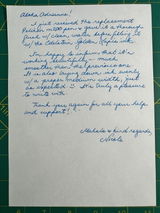 Aloha Adrienne!
I just received the replacement
Pelikan M800 pen & gave it a thorough
flush w/ clean water before filling it
w/ the Edelstein Golden Lapis ink.
I'm happy to inform that it's
working beautifully - much
smoother than the previous one.
It is also laying down ink evenly
w/ a proper medium width, just
as expected :) It's truly a pleasure
to write with.
Thank you again for all your help
and support!
Mahalo & kind regards,
Nicole